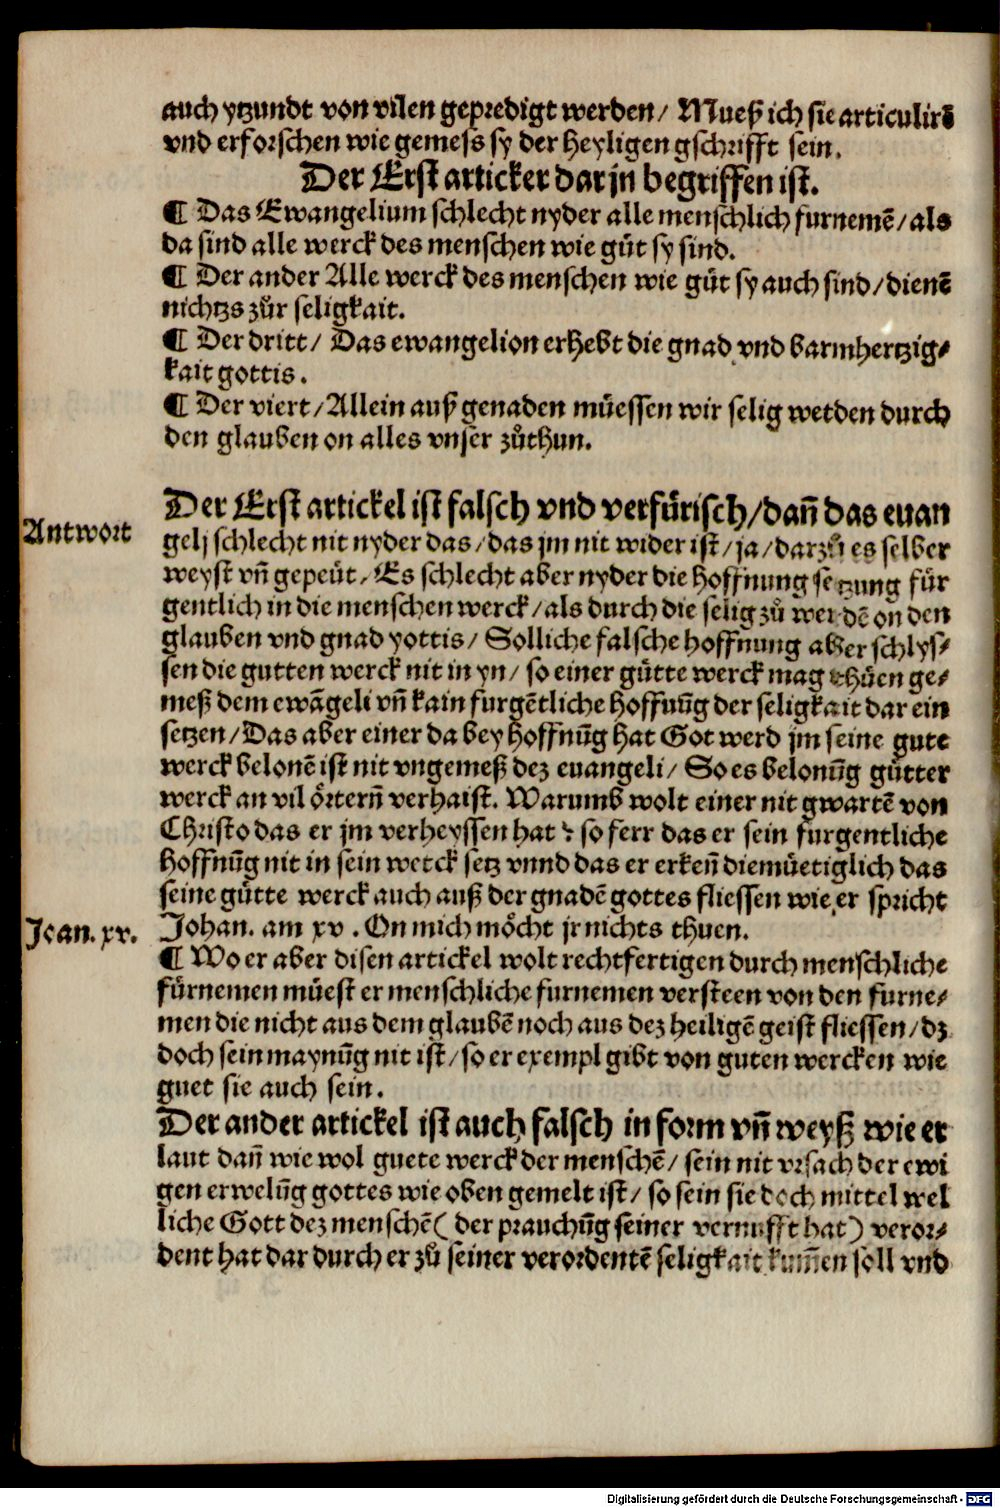 auch yꜩundt von vilen gepredigt werden/ Mueß ich sie articulirē
vnd erforschen wie gemess sy der heyligen gschrifft sein.
Der Erst articker dar jn begriffen ist.
¶ Das Ewangelium schlecht nyder alle menschlich furnemē/als
da sind alle werck des menschen wie gůt sy sind.
¶ Der ander Alle werck des menschen wie gůt sy auch sind/dienē
nichtzs zůr seligkait.
¶ Der dritt/ Das ewangelion erhebt die gnad vnd barmhertzig⸗
kait gottis.
¶ Der viert/Allein auß genaden müessen wir selig wetden durch
den glauben on alles vnser zůthun.
Antwort
Der Erst artickel ist falsch vnd verfürisch/dañ das euan
gelj schlecht nit nyder das/das jm nit wider ist/ja/darzů es selber
weyst vñ gepeüt/Es schlecht aber nyder die hoffnung setzung für
gentlich in die menschen werck/als durch die selig zů werdē on den
glauben vnd gnad yottis/ Solliche falsche hoffnung aber schlys⸗
sen die gutten werck nit in yn/ so einer gůtte werck mag thůen ge⸗
meß dem ewāgeli vñ kain furgētliche hoffnūg der seligkait dar ein
setzen/Das aber einer da bey hoffnūg hat Got werd jm seine gute
werck belonē ist nit vngemeß dez euangeli/ So es belonūg gůtter
werck an vil örterñ verhaist. Warumb wolt einer nit gwartē von
Christo das er jm verheyssen hat ? so ferr das er sein furgentliche
hoffnūg nit in sein wetck setz vnnd das er erkeñ diemüetiglich das
seine gůtte werck auch auß der gnadē gottes fliessen wie er spricht
Jean. xv.
Johan. am xv . On mich möcht jr nichts thuen.
¶ Wo er aber disen artickel wolt rechtfertigen durch menschliche
fürnemen müest er menschliche furnemen versteen von den furne⸗
men die nicht aus dem glaubē noch aus dez heiligē geist fliessen/dz
doch sein maynūg nit ist/so er exempl gibt von guten wercken wie
guet sie auch sein.
Der ander artickel ist auch falsch in form vñ weyß wie er
laut dañ wie wol guete werck der menschē/ sein nit vrsach der ewi
gen erwelūg gottes wie oben gemelt ist/ so sein sie doch mittel wel
liche Gott dez menschē( der prauchūg seiner vernufft hat) veror⸗
dent hat dar durch er zů seiner verordentē seligkait kum̄en soll vnd
Digitalisierung gefördert durch die Deutsche Forschungsgemeinschaft - DFG